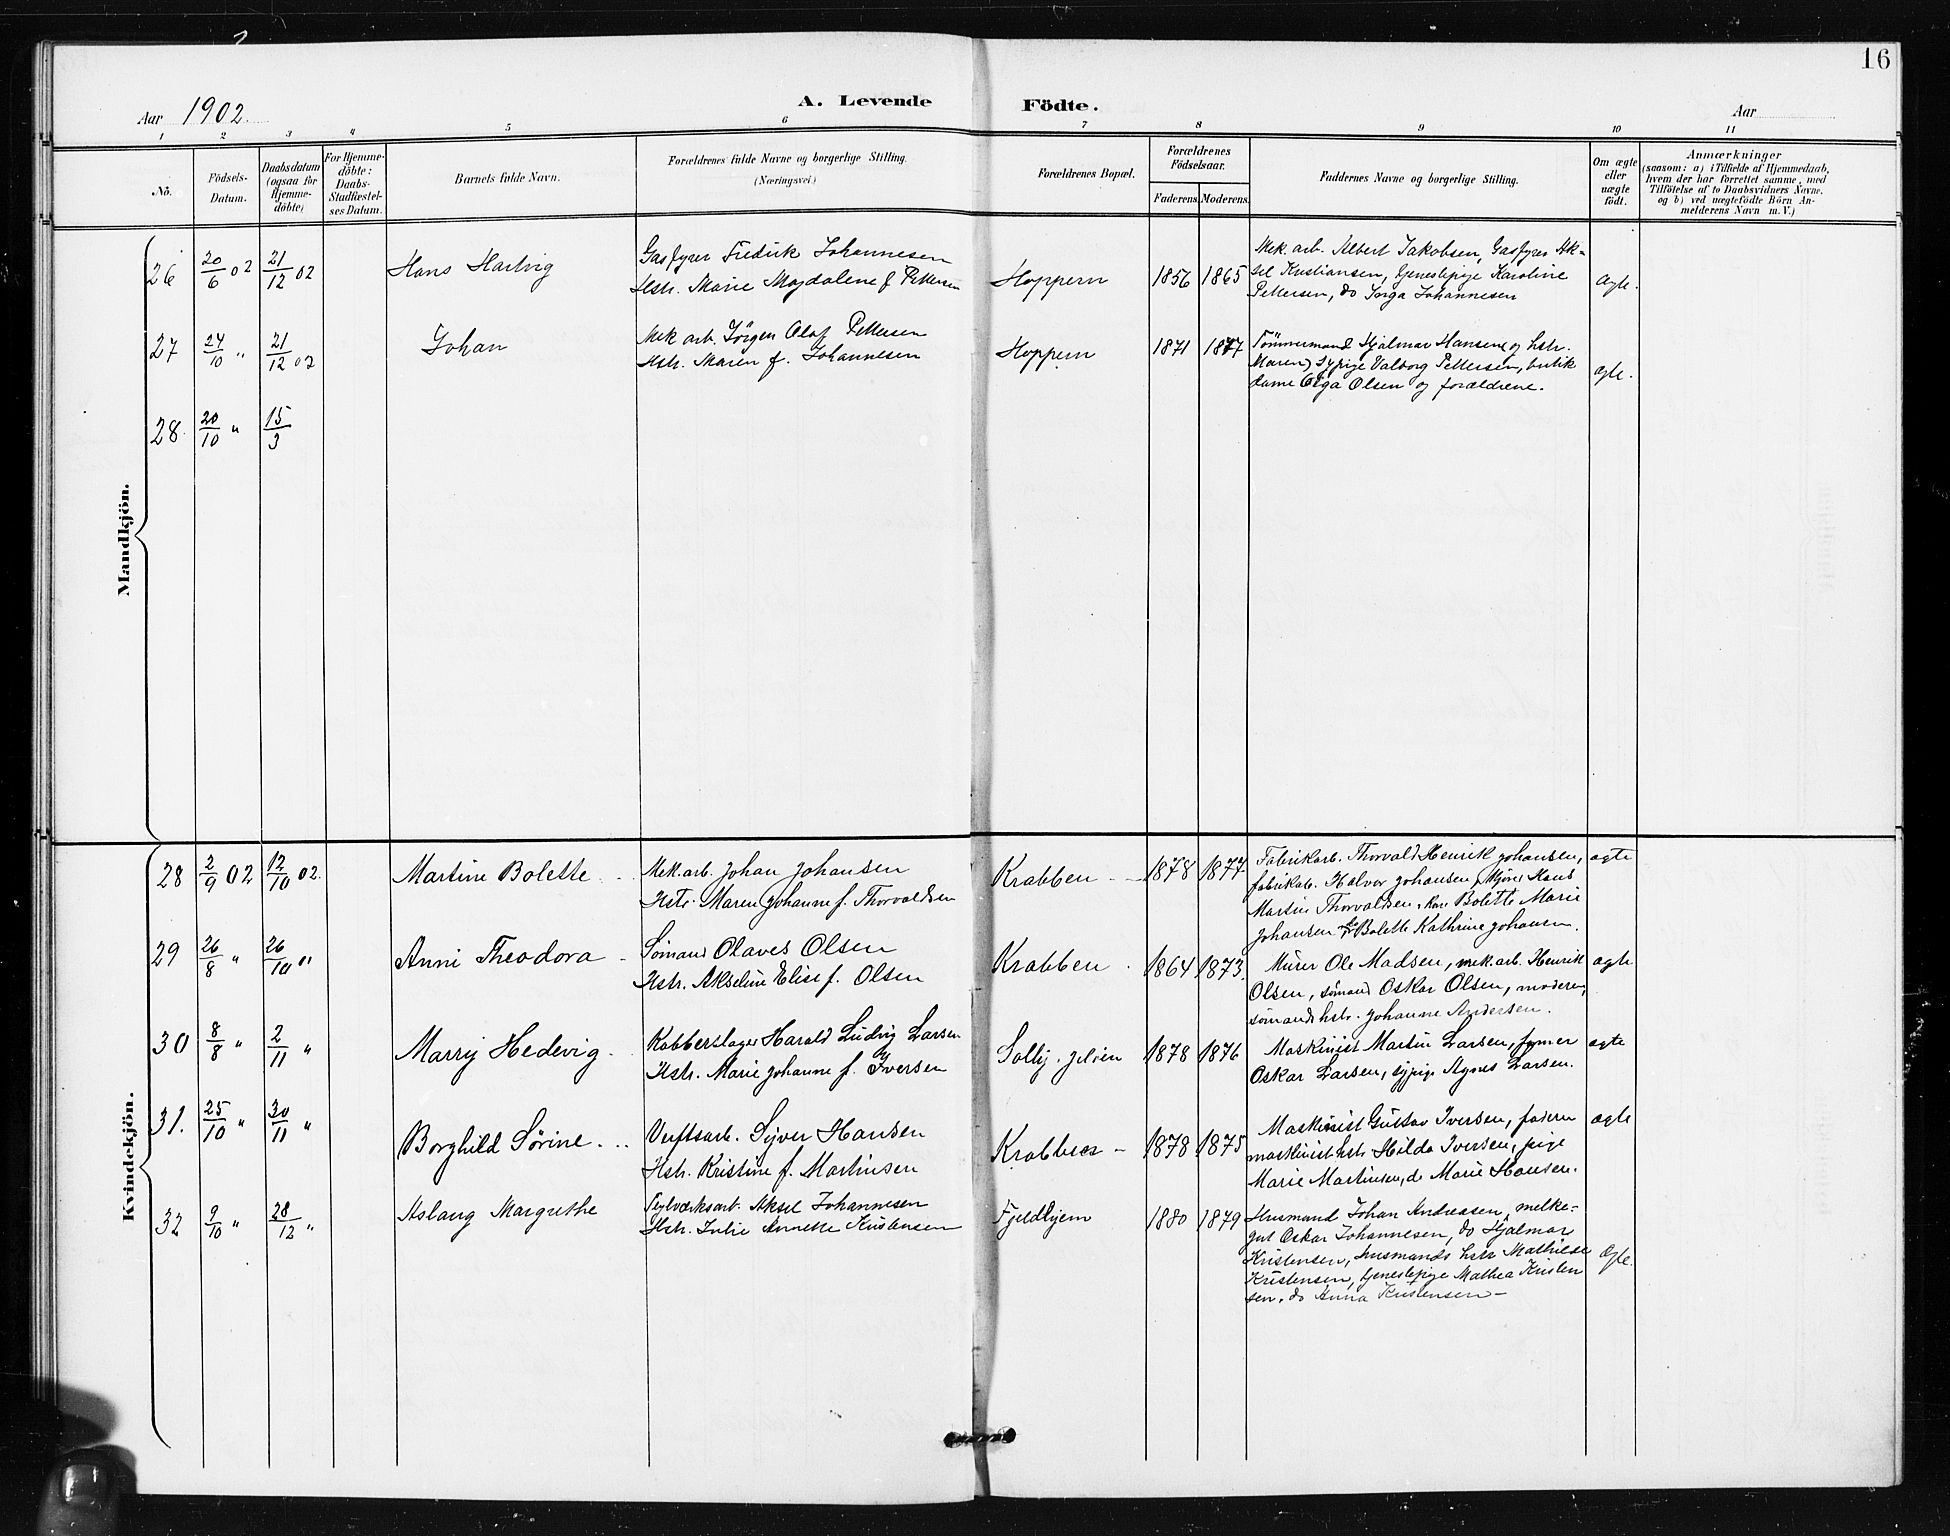 16
Aar 1902.
A. Levende Födte.
Aar
1 2 3 4 5 6 7 8 9 10 11
No.
Födsels-Datum.
Daabsdatum (ogsaa for Hjemme-döbte)
For Hjemme-döbte: Daabs-Stadfæstel-ses Datum.
Barnets fulde Navn.
Forældrenes fulde Navne og borgerlige Stilling. (Næringsvei.)
Forældrenes Bopæl.
Forældrenes Födselsaar.
Faderens. Moderens.
Faddernes Navne og borgerlige Stilling.
Om ægte eller uægte födt.
Anmærkninger
(saasom: a) i Tilfælde af Hjemmedaab,
hvem der har forrettet samme, med
Tilföielse af to Daabsvidners Navne,
og b) ved uægtefödte Börn An-
melderens Navn m. V.)
Mandkjön.
26 20/6 02 21/12 02 Hans Hartvig
Gasfyrer Fredrik Johannesen
Hstr. Marie Magdalene f. Pettersen
Hoppern 1856 1865
Mek. arb. Albert Jakobsen, Gasfyrer Ak-
sel Kristiansen, tjenestepige Karoline
Pettersen, do Inga Johannesen
ægte.
27 24/10 " 21/12 02 Johan
Mek. arb. Jörgen Olaf Pettersen
Hstr. Maren f. Johannesen
Hoppern 1871 1877
Tømmermand Hjalmar Hansen og hstr.
Maren, Sypige Valborg Pettersen, butik
dame Olga Olsen og forældrene.
ægte.
28. 20/10 " 15/3
Kvindekjön.
28 2/9 02 12/10 02. Martine Bolette
Mek. arb. Johan Johansen
Hstr. Maren Johanne f. Thorvaldsen
Krabben 1878 1877
Fabrikarb. Thorvald Henrik Johansen,
fabrikarb. Halvor Johansen, Hans
Martin Thorvaldsen, Bolette Marie
Johansen Bolette Kathrine Johansen.
ægte
29 26/8 " 26/10 " Anni Theodora
Sømand Olaves Olsen
Hstr. Akseline Elise f. Olsen
Krabben 1864 1873.
Murer Ole Madsen, mek. arb. Henrik
Olsen, sømand Oskar Olsen, moderen,
sømands hstr. Johanne Andersen.
ægte
30 8/8 " 2/11 " Marry Hedevig
Kobberslager Harald Ludvig Larsen
Hstr. Marie Johanne f. Iversen
Solby. Jeløen 1878 1876
Maskinist Martin Larsen, fyrer
Oskar Larsen, sypige Agnes Larsen.
ægte
31. 25/10 " 30/11 " Borghild Sørine
Verftsarb. Syver Hansen
Hstr. Kristine f. Martinsen
Krabben 1878 1875
Maskinist Gustav Iversen, faderen
maskinist hstr. Hilda Iversen, pige
Marie Martinsen, do Marie Hansen.
ægte
32 9/10 " 28/12 " Aslaug Margrethe
Teglværksarb. Aksel Johannesen
Hstr. Julie Annette Kristensen
Fjeldhjem 1880 1879
Husmand Johan Andreasen, melke-
gut Oskar Johannesen, do Hjalmar
Kristensen, husmands hstr Mathilde
Kristensen, tjenestepige Mathea Kristen
sen, do Anna Kristensen
ægte.